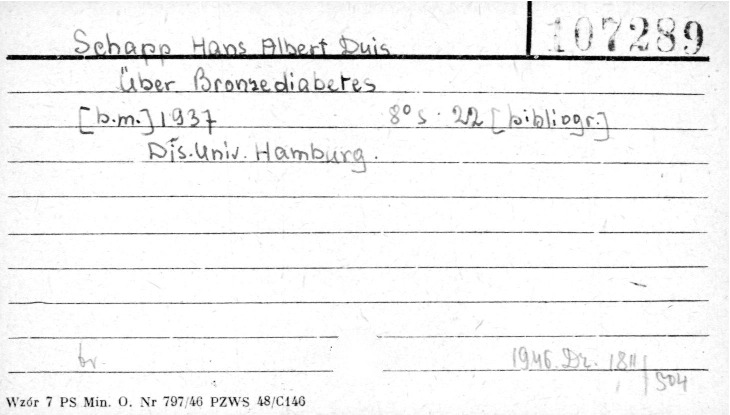 107289
Schapp Hans Albert Duis
Über Bronzediabetes
[b.m.] 1937 8° s. 22 [bibliogr.]
Dis. Univ. Hamburg.
br.
1946 Dr. 1811/504
Wzór 7 PS Min. O. Nr 797/46 PZWS 48/C146